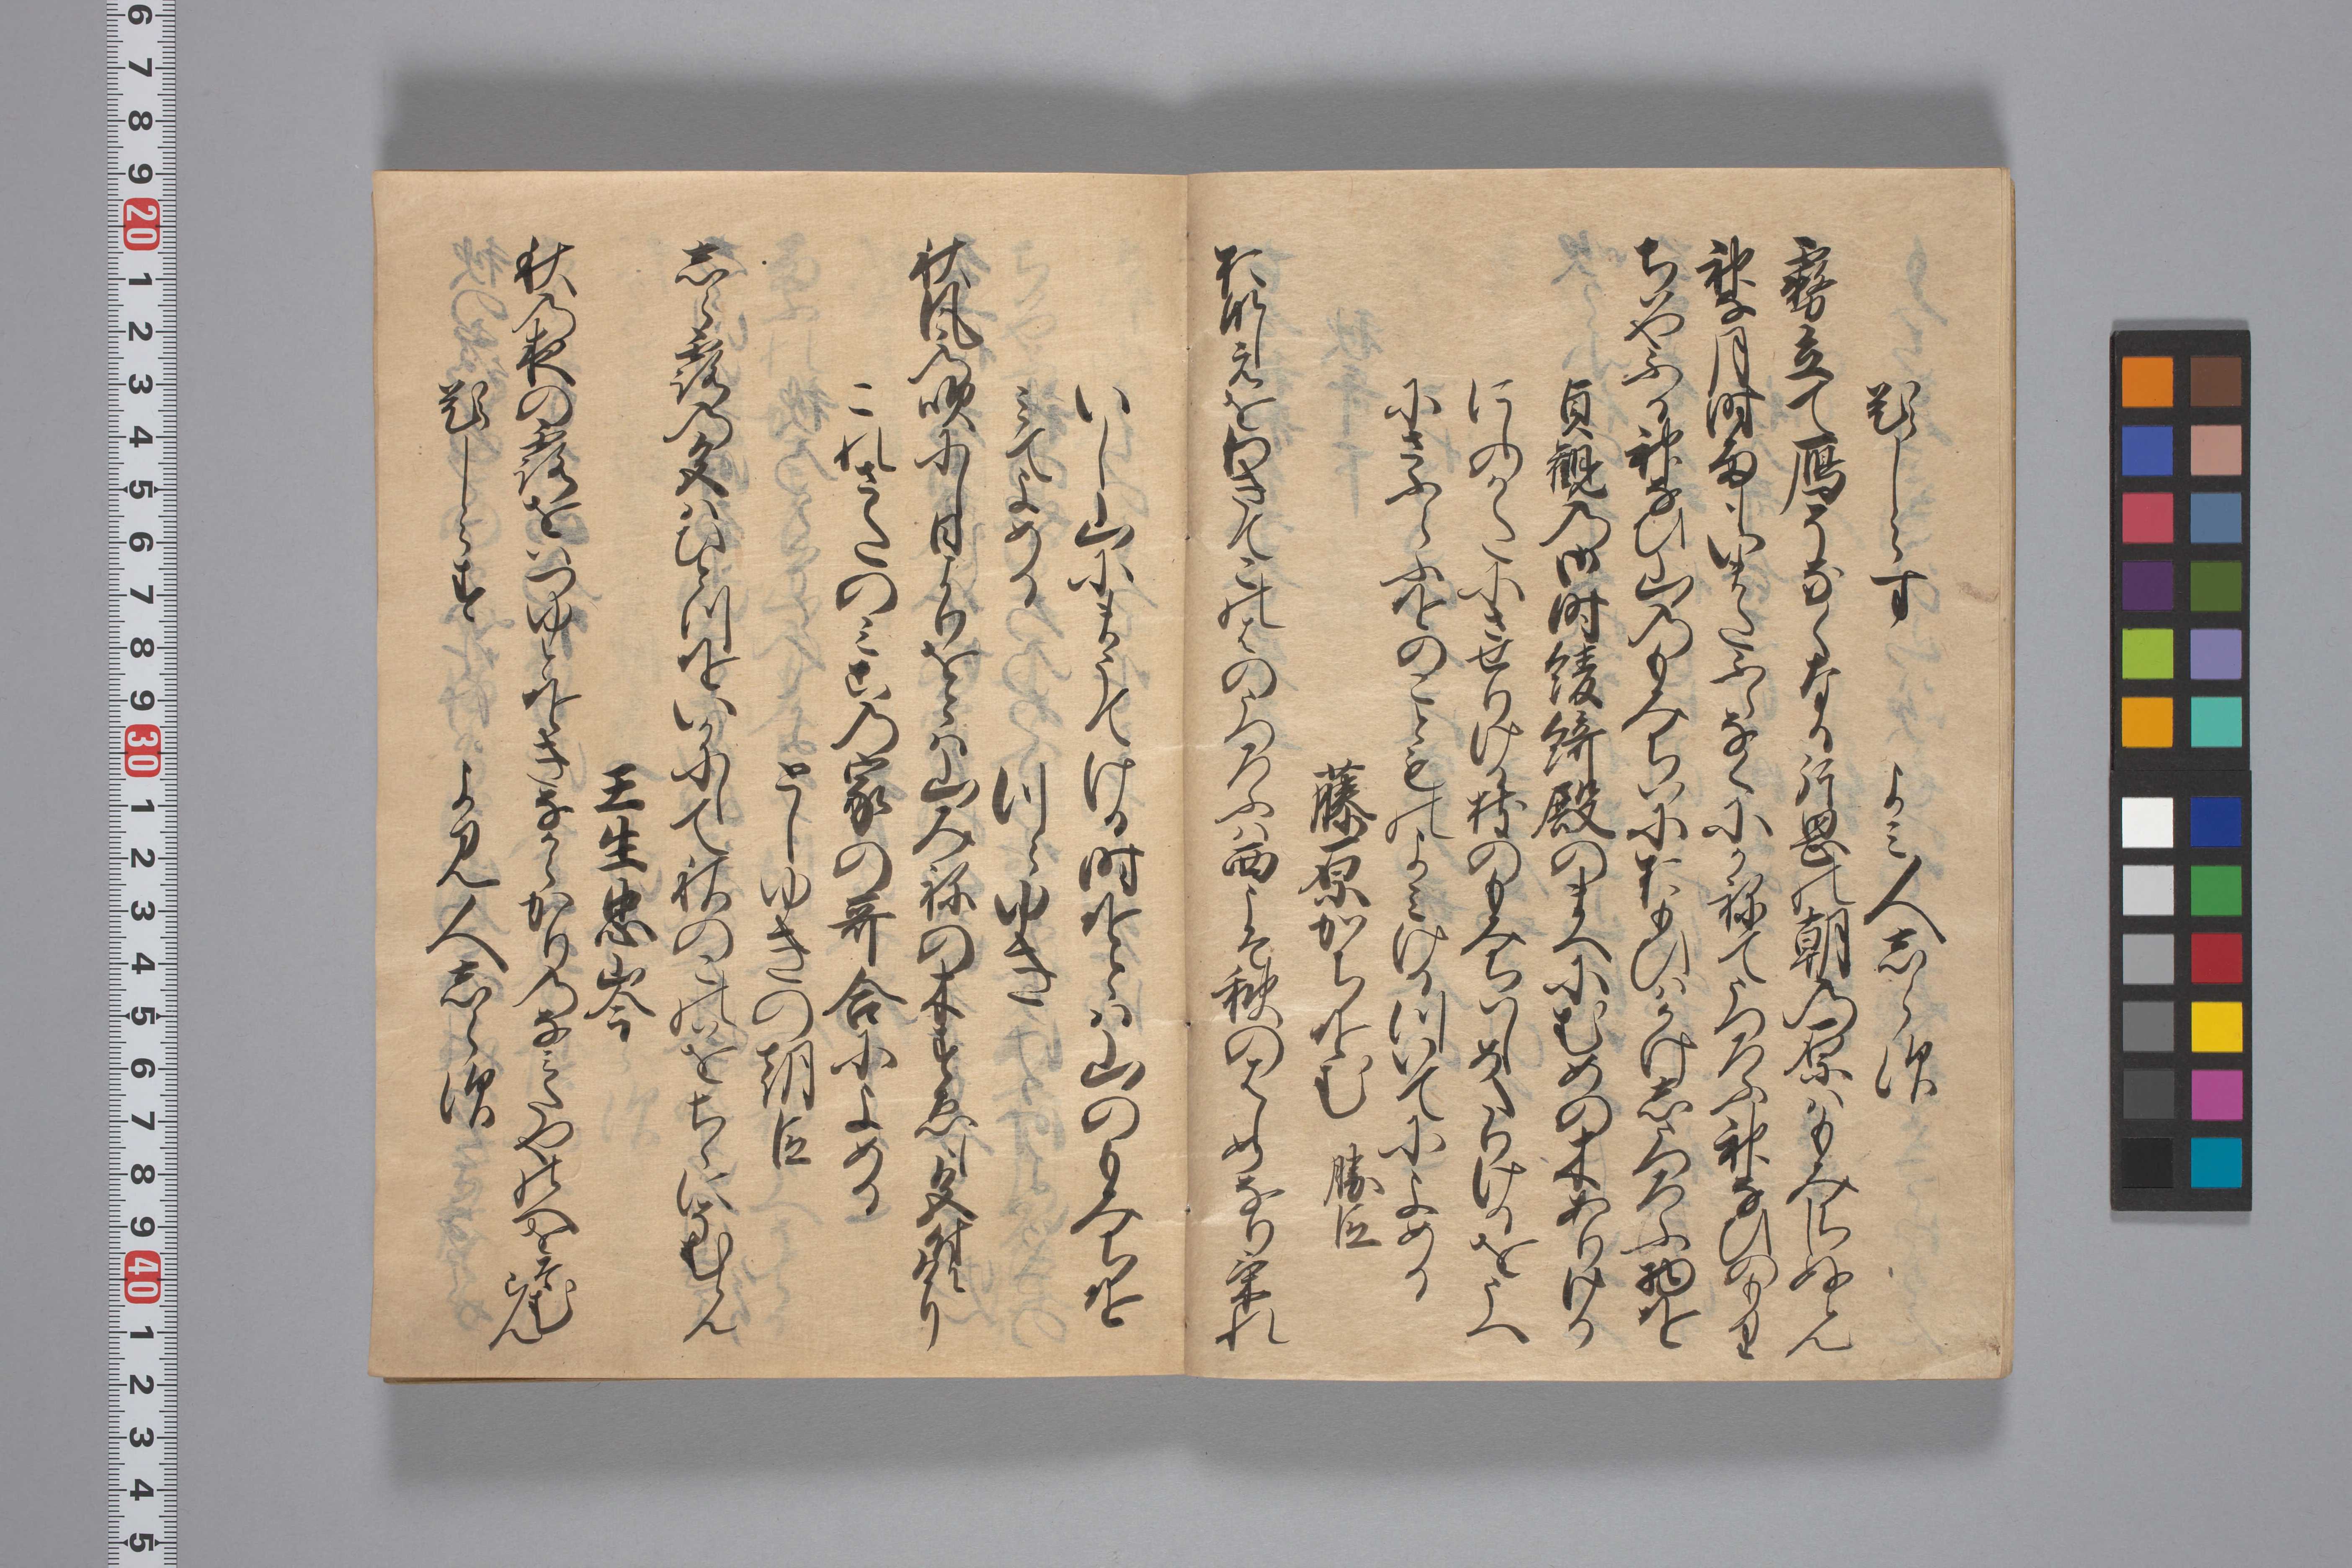 題しらす　よミ人志らす
霧立て鴈そなくなる片岡の朝の原ハもみちぬらん
神な月時雨もいまたふらなくにかねてうつろふ神なひのもり
ちはやふる神なひ山のもみちはにおもひハかけ志うつろふ物を
貞観の御時綾綺殿のまへにむめの木ありけり
にしのかたにさせりける枝のもみちはしめたりけるをうへ
にさふらふをのこともによミける川いてによめる
藤原かちおむ　勝臣
おなしえをわきてこのはのうつろふハ西こそ秋のはしめなりけれ
いし山にまうてける時をとハ山のもみちを
ミてよめる　川らゆき
秋風の吹にし日よりをとハ山みねの木すゑも色付にけり
これさたのミこの家の哥合によめる
としゆきの朝臣
志ら露の色ハひとつをいかにして秋のこのはをちゝにそむらん
壬生忠岑
秋の夜の露をハつゆとをきなからかりのなミたやのへをそむらん
題しらす　よみ人志らす
6 7 8 9 20 1 2 3 4 5 6 7 8 9 30 1 2 3 4 5 6 7 8 9 40 1 2 3 4 5